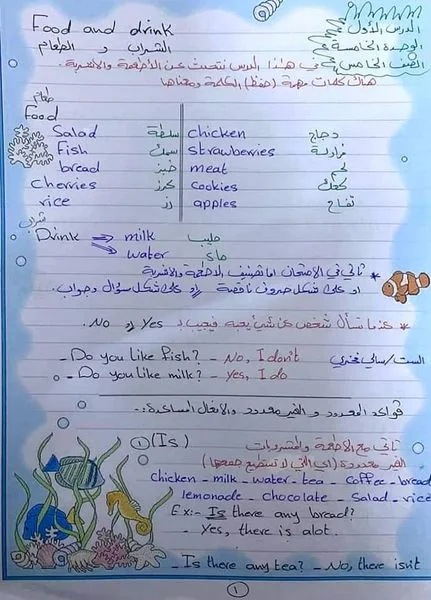 Food and drink
الشراب و الطعام
الدرس الأول
الوحدة الخامسة
الصف الخامس
في هذا الدرس نتحدث عن الأطعمة والأشربة.
هناك كلمات مهمة (حفظ) الكلمة ومعناها
Food
Salad سلطة chicken دجاج
Fish سمك strawberries فراولة
bread خبز meat لحم
Cherries كرز cookies كعك
rice رز apples تفاح
شراب
Drink milk حليب
water ماء
* تأتي في الامتحان اما تصنيف لاطعمة والاشربة
او على شكل حروف ناقصة او على شكل سؤال وجواب.
* عندما تسأل شخص عن شيء يحبه فيجيب بـ Yes او No.
- Do you like fish? - No, I don't
- Do you like milk? - Yes, I do
الست/سالي
قواعد المعدود و الغير معدود والافعال المساعدة:-
① (Is) تأتي مع الاطعمة والمشروبات
الغير معدودة (اي التي لا تستطيع جمعها)
chicken - milk - water - tea - coffee - bread
lemonade - chocolate - Salad - rice
Ex:- Is there any bread?
- Yes, there is alot.
- Is there any tea? - No, there isn't
①